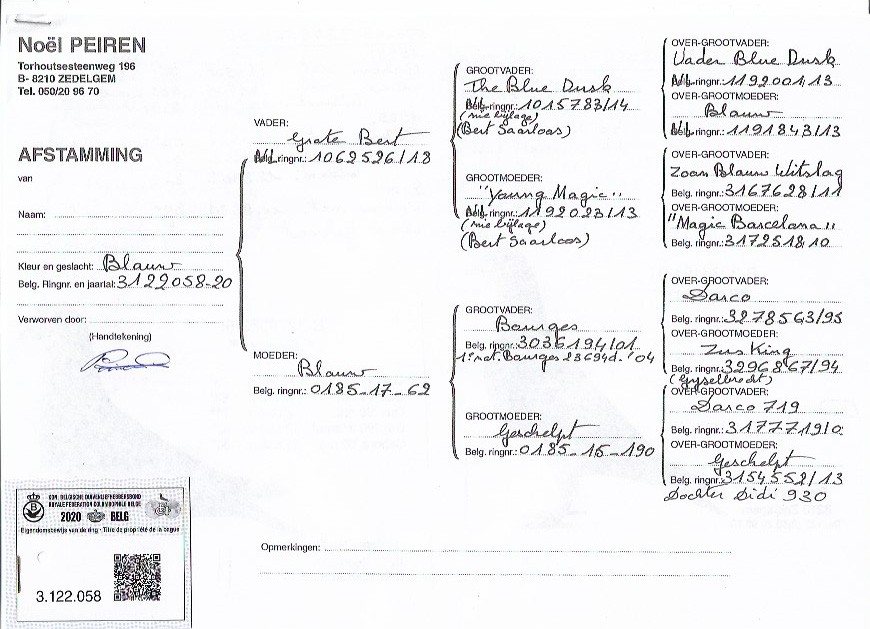 Noël PEIREN
Torhoutsesteenweg 196
B- 8210 ZEDELGEM
Tel. 050/20 96 70
AFSTAMMING
van
Naam:
Kleur en geslacht: Blauw
Belg. Ringnr. en jaartal: 3122058-20
Verworven door:
(Handtekening)
VADER:
Grote Bert
ringnr.: 1062526/18
MOEDER:
Blauw
Belg. ringnr.: 0185-17-62
GROOTVADER:
The Blue Dusk
ringnr.: 1015783/14
(zie bijlage)
(Bert Saarloos)
GROOTMOEDER:
"Young Magic"
ringnr.: 1192023/13
(zie bijlage)
(Bert Saarloos)
GROOTVADER:
Bourges
Belg. ringnr.: 3036194/01
1° nat. Bourges 23694d. '04
GROOTMOEDER:
Geschelpt
Belg. ringnr.: 0185-15-190
OVER-GROOTVADER:
Vader Blue Dusk
ringnr.: 1192001/13
OVER-GROOTMOEDER:
Blauw
ringnr.: 1191843/13
OVER-GROOTVADER:
Zoon Blauw Witslag
Belg. ringnr.: 3167628/11
OVER-GROOTMOEDER:
"Magic Barcelona"
Belg. ringnr.: 3172518/10
OVER-GROOTVADER:
Darco
Belg. ringnr.: 3278563/95
OVER-GROOTMOEDER:
Zus King
Belg. ringnr.: 3296867/94
(Gyselbrecht)
OVER-GROOTVADER:
Darco 719
Belg. ringnr.: 3177719/0
OVER-GROOTMOEDER:
Geschelpt
Belg. ringnr.: 3154552/13
Dochter Didi 930
KON. BELGISCHE DUIVENLIEFHEBBERSBOND
ROYALE FEDERATION COLOMBOPHILE BELGE
2020 BELG
Eigendomsbewijs van de ring - Titre de propriété de la bague
3.122.058
Opmerkingen: